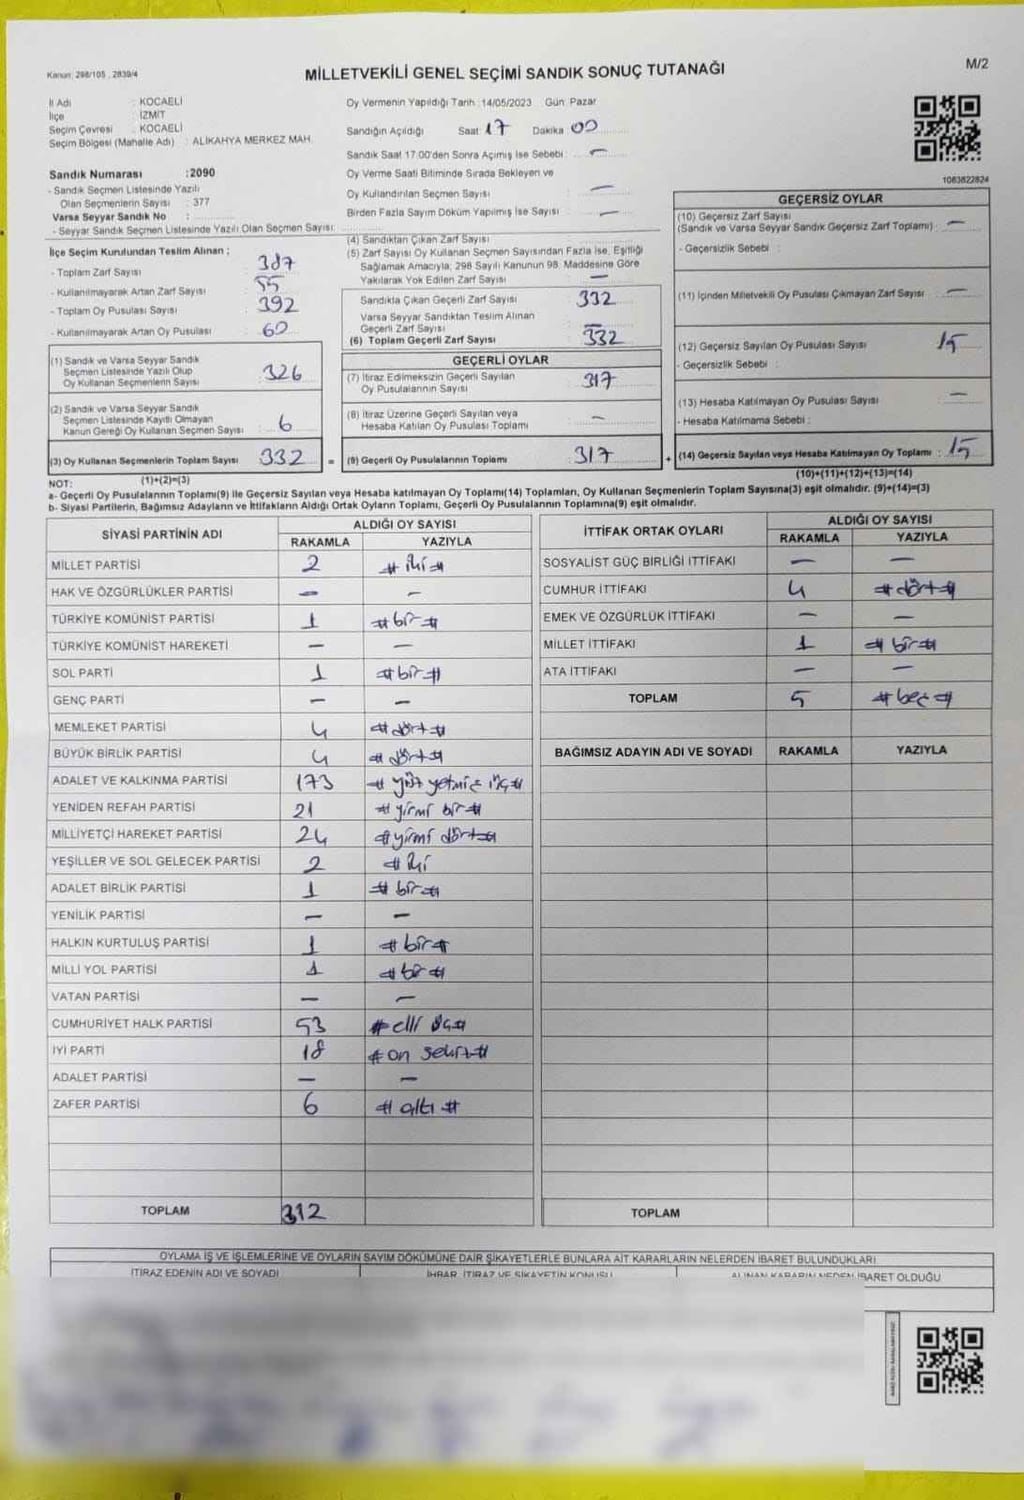 Kanun: 298/105 , 2839/4
MİLLETVEKİLİ GENEL SEÇİMİ SANDIK SONUÇ TUTANAĞI
M/2
İl Adı : KOCAELİ
İlçe : İZMİT
Seçim Çevresi : KOCAELİ
Seçim Bölgesi (Mahalle Adı) : ALİKAHYA MERKEZ MAH.
Sandık Numarası :2090
- Sandık Seçmen Listesinde Yazılı
Olan Seçmenlerin Sayısı : 377
Varsa Seyyar Sandık No :
- Seyyar Sandık Seçmen Listesinde Yazılı Olan Seçmen Sayısı :
İlçe Seçim Kurulundan Teslim Alınan :
- Toplam Zarf Sayısı 387
- Kullanılmayarak Artan Zarf Sayısı 55
- Toplam Oy Pusulası Sayısı 392
- Kullanılmayarak Artan Oy Pusulası 60
(1) Sandık ve Varsa Seyyar Sandık
Seçmen Listesinde Yazılı Olup
Oy Kullanan Seçmenlerin Sayısı : 326
(2) Sandık ve Varsa Seyyar Sandık
Seçmen Listesinde Kayıtlı Olmayan
Kanun Gereği Oy Kullanan Seçmen Sayısı : 6
(3) Oy Kullanan Seçmenlerin Toplam Sayısı 332 =
(1)+(2)=(3)
Oy Vermenin Yapıldığı Tarih :14/05/2023 Gün: Pazar
Sandığın Açıldığı Saat 17 Dakika 00
Sandık Saat 17.00'den Sonra Açımış İse Sebebi : —
Oy Verme Saati Bitiminde Sırada Bekleyen ve
Oy Kullandırılan Seçmen Sayısı : —
Birden Fazla Sayım Döküm Yapılmış İse Sayısı : —
(4) Sandıktan Çıkan Zarf Sayısı
(5) Zarf Sayısı Oy Kullanan Seçmen Sayısından Fazla İse, Eşitliği
Sağlamak Amacıyla; 298 Sayılı Kanunun 98. Maddesine Göre
Yakılarak Yok Edilen Zarf Sayısı : —
Sandıkta Çıkan Geçerli Zarf Sayısı : 332
Varsa Seyyar Sandıktan Teslim Alınan
Geçerli Zarf Sayısı : —
(6) Toplam Geçerli Zarf Sayısı : 332
GEÇERLİ OYLAR
(7) İtiraz Edilmeksizin Geçerli Sayılan
Oy Pusulalarının Sayısı : 317
(8) İtiraz Üzerine Geçerli Sayılan veya
Hesaba Katılan Oy Pusulası Toplamı : —
(9) Geçerli Oy Pusulalarının Toplamı : 317 +
1083822824
GEÇERSİZ OYLAR
(10) Geçersiz Zarf Sayısı
(Sandık ve Varsa Seyyar Sandık Geçersiz Zarf Toplamı) : —
- Geçersizlik Sebebi :
(11) İçinden Milletvekili Oy Pusulası Çıkmayan Zarf Sayısı : —
(12) Geçersiz Sayılan Oy Pusulası Sayısı : 15
- Geçersizlik Sebebi :
(13) Hesaba Katılmayan Oy Pusulası Sayısı : —
- Hesaba Katılmama Sebebi :
(14) Geçersiz Sayılan veya Hesaba Katılmayan Oy Toplamı : 15
(10)+(11)+(12)+(13)=(14)
NOT:
a- Geçerli Oy Pusulalarının Toplamı(9) ile Geçersiz Sayılan veya Hesaba katılmayan Oy Toplamı(14) Toplamları, Oy Kullanan Seçmenlerin Toplam Sayısına(3) eşit olmalıdır. (9)+(14)=(3)
b- Siyasi Partilerin, Bağımsız Adayların ve İttifakların Aldığı Ortak Oyların Toplamı, Geçerli Oy Pusulalarının Toplamına(9) eşit olmalıdır.
SİYASİ PARTİNİN ADI ALDIĞI OY SAYISI
RAKAMLA YAZIYLA
MİLLET PARTİSİ 2 # iki #
HAK VE ÖZGÜRLÜKLER PARTİSİ — —
TÜRKİYE KOMÜNİST PARTİSİ 1 # bir #
TÜRKİYE KOMÜNİST HAREKETİ — —
SOL PARTİ 1 # bir #
GENÇ PARTİ — —
MEMLEKET PARTİSİ 4 # dört #
BÜYÜK BİRLİK PARTİSİ 4 # dört #
ADALET VE KALKINMA PARTİSİ 173 # yüz yetmiş üç #
YENİDEN REFAH PARTİSİ 21 # yirmi bir #
MİLLİYETÇİ HAREKET PARTİSİ 24 # yirmi dört #
YEŞİLLER VE SOL GELECEK PARTİSİ 2 # iki
ADALET BİRLİK PARTİSİ 1 # bir #
YENİLİK PARTİSİ — —
HALKIN KURTULUŞ PARTİSİ 1 # bir #
MİLLİ YOL PARTİSİ 1 # bir #
VATAN PARTİSİ — —
CUMHURİYET HALK PARTİSİ 53 # elli üç #
İYİ PARTİ 18 # on sekiz #
ADALET PARTİSİ — —
ZAFER PARTİSİ 6 # altı #
TOPLAM 312
İTTİFAK ORTAK OYLARI ALDIĞI OY SAYISI
RAKAMLA YAZIYLA
SOSYALİST GÜÇ BİRLİĞİ İTTİFAKI — —
CUMHUR İTTİFAKI 4 # dört #
EMEK VE ÖZGÜRLÜK İTTİFAKI — —
MİLLET İTTİFAKI 1 # bir #
ATA İTTİFAKI — —
TOPLAM 5 # beş #
BAĞIMSIZ ADAYIN ADI VE SOYADI RAKAMLA YAZIYLA
TOPLAM
OYLAMA İŞ VE İŞLEMLERİNE VE OYLARIN SAYIM DÖKÜMÜNE DAİR ŞİKAYETLERLE BUNLARA AİT KARARLARIN NELERDEN İBARET BULUNDUKLARI
İTİRAZ EDENİN ADI VE SOYADI İHBAR, İTİRAZ VE ŞİKAYETİN KONUSU ALINAN KARARIN NEDEN İBARET OLDUĞU